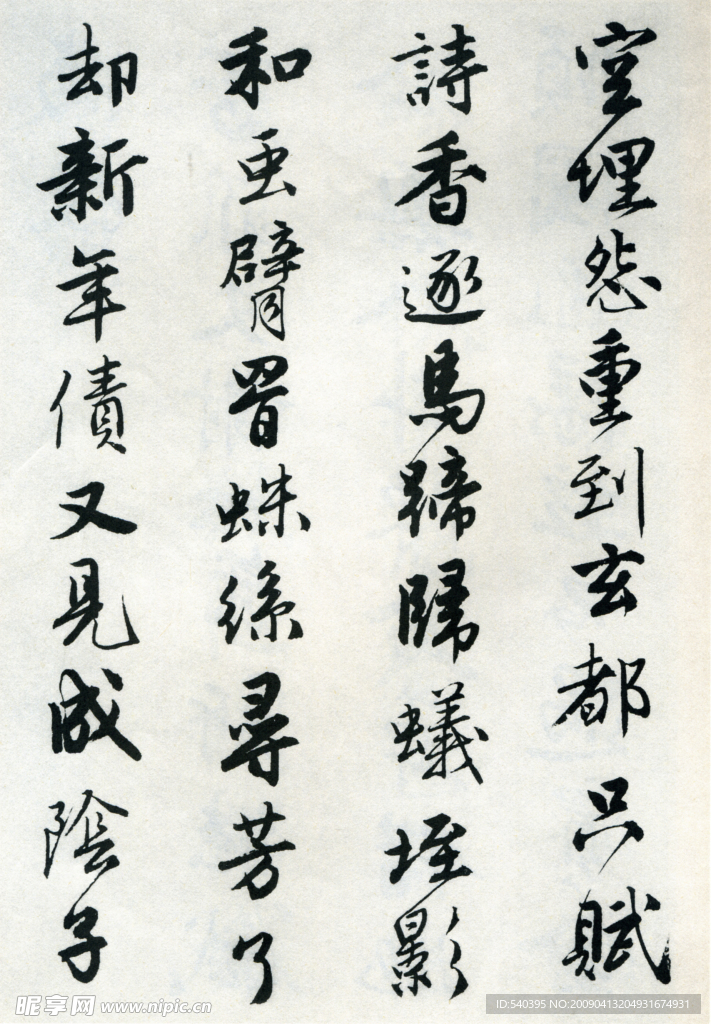 空埋怨重到玄都只賦
詩香逐馬蹄歸蟻垤影
和虫臂罥蛛絲尋芳了
却新年債又見成陰子
昵享网 www.nipic.cn
ID:540395 NO:20090413204931674931